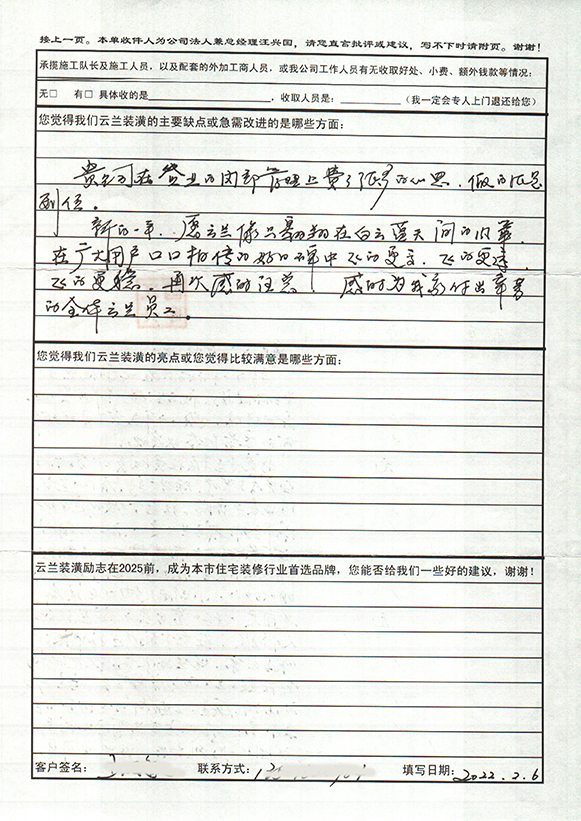 接上一页。本单收件人为公司法人兼总经理汪兴国，请您直言批评或建议，写不下时请附页。谢谢！
承揽施工队长及施工人员，以及配套的外加工商人员，或我公司工作人员有无收取好处、小费、额外钱款等情况：
无□ 有□ 具体收的是 ，收取人员是： （我一定会专人上门退还给您）
您觉得我们云兰装潢的主要缺点或急需改进的是哪些方面：
贵公司在营业的内部管理上费了很多的心思，做的
到位。
新的一年，愿云兰像只翱翔在白云蓝天间的
在广大用户口口相传的好口碑中飞的更高，飞的更
飞的更稳，再次感谢汪总！感谢为我家付出辛苦
的全体云兰员工。
您觉得我们云兰装潢的亮点或您觉得比较满意是哪些方面：
云兰装潢励志在2025前，成为本市住宅装修行业首选品牌，您能否给我们一些好的建议，谢谢！
客户签名： 联系方式： 填写日期：2022.2.6